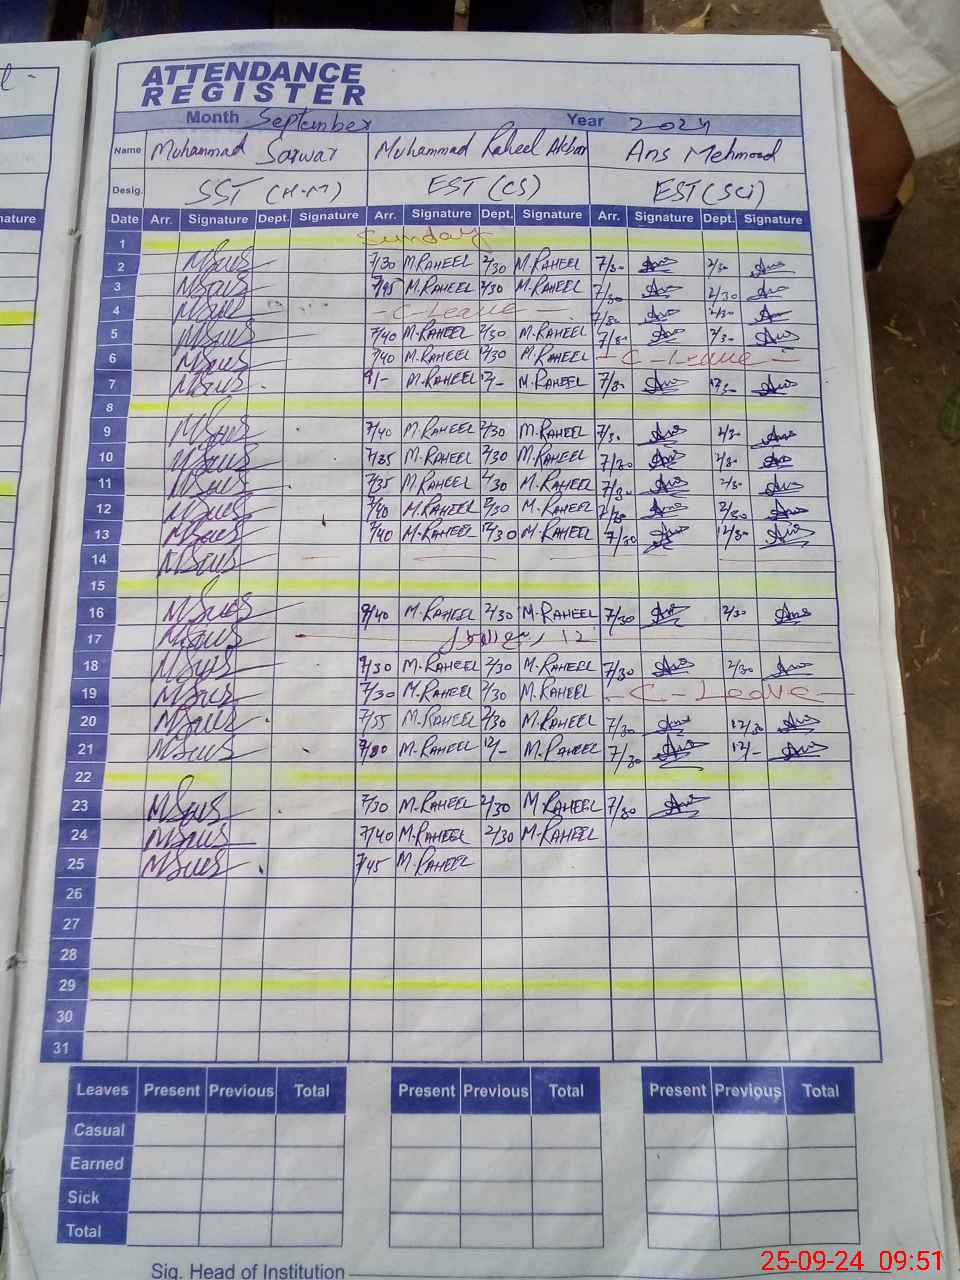 ATTENDANCE
REGISTER
Month September Year 2024
Name Muhammad Sarwar Muhammad Raheel Akbar Ans Mehmood
Desig. SST (H.M) EST (CS) EST (SCI)
Date Arr. Signature Dept. Signature Arr. Signature Dept. Signature Arr. Signature Dept. Signature
1 Sunday
2 7/30 M.RAHEEL 2/30 M.RAHEEL 7/30 2/30
3 7/45 M.RAHEEL 2/30 M.RAHEEL 7/30 2/30
4 - C-Leave - 7/30 2/30
5 7/40 M.RAHEEL 2/30 M.RAHEEL 7/30 2/30
6 7/40 M.RAHEEL 12/30 M.RAHEEL - C - Leave -
7 M.RAHEEL 12/- M.RAHEEL 7/30
8
9 7/40 M.RAHEEL 2/30 M.RAHEEL 7/30 2/30
10 7/35 M.RAHEEL 2/30 M.RAHEEL 7/30 2/30
11 7/35 M.RAHEEL 2/30 M.RAHEEL 7/30 2/30
12 7/40 M.RAHEEL 2/30 M.RAHEEL 7/30 2/30
13 7/40 M.RAHEEL 12/30 M.RAHEEL 7/30 12/30
14
15
16 M.RAHEEL 2/30 M.RAHEEL 7/30 2/30
17 12 ربیع الاول
18 M.RAHEEL 2/30 M.RAHEEL 7/30 2/30
19 7/30 M.RAHEEL 2/30 M.RAHEEL - C - Leave -
20 7/55 M.RAHEEL 2/30 M.RAHEEL 7/30 12/30
21 M.RAHEEL 12/- M.RAHEEL 7/30 12/-
22
23 7/30 M.RAHEEL 2/30 M.RAHEEL 7/30
24 7/40 M.RAHEEL 2/30 M.RAHEEL
25 7/45 M.RAHEEL
26
27
28
29
30
31
Leaves Present Previous Total Present Previous Total Present Previous Total
Casual
Earned
Sick
Total
Sig. Head of Institution
25-09-24 09:51